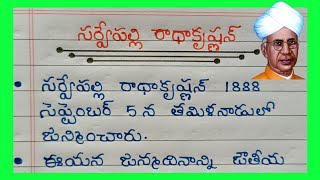 సర్వేపల్లి రాధాకృష్ణన్
• సర్వేపల్లి రాధాకృష్ణన్ 1888
సెప్టెంబర్ 5 న తమిళనాడులో
జన్మించారు.
• ఈయన జన్మదినాన్ని జాతీయ